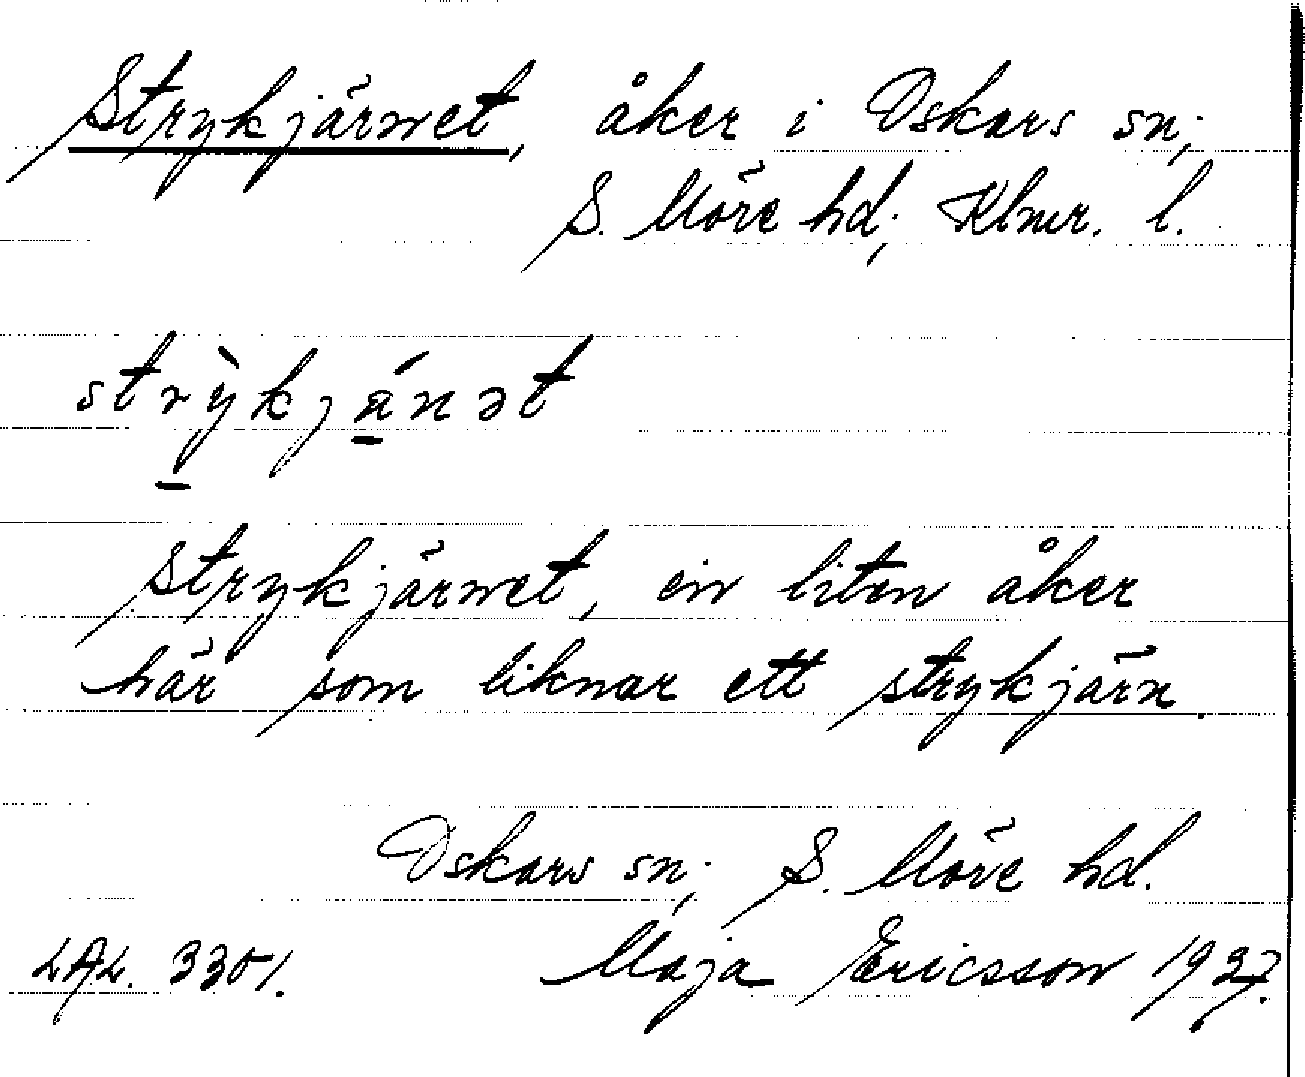 Strykjärnet, åker i Oskars sn;
S. Möre hd; Klmr. l.
strỳkjánət
Strykjärnet, en liten åker
här som liknar ett strykjärn.
Oskars sn; S. Möre hd.
LAL. 3301. Maja Ericsson 1937.